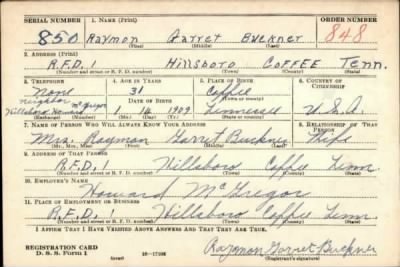 SERIAL NUMBER 1. NAME (Print) ORDER NUMBER
850 Raymon Garret Buckner 848
(First) (Middle) (Last)
2. ADDRESS (Print)
R.F.D. 1 Hillsboro COFFEE Tenn.
(Number and street or R. F. D. number) (Town) (County) (State)
3. TELEPHONE 4. AGE IN YEARS 5. PLACE OF BIRTH 6. COUNTRY OF CITIZENSHIP
None 31 Coffie
Neighbor McGregor DATE OF BIRTH (Town or county)
Hillsboro Howard 1 14 1909 Tennessee U.S.A.
(Mo.) (Day) (Yr.) (State or country)
7. NAME OF PERSON WHO WILL ALWAYS KNOW YOUR ADDRESS 8. RELATIONSHIP OF THAT PERSON
Mrs. Raymon Garret Buckner Wife
(Mr., Mrs., Miss) (First) (Middle) (Last)
9. ADDRESS OF THAT PERSON
R.F.D. 1 Hillsboro Coffie Tenn.
(Number and street or R. F. D. number) (Town) (County) (State)
10. EMPLOYER'S NAME
Howard McGregor
11. PLACE OF EMPLOYMENT OR BUSINESS
R.F.D. 1 Hillsboro Coffie Tenn.
(Number and street or R. F. D. number) (Town) (County) (State)
I AFFIRM THAT I HAVE VERIFIED ABOVE ANSWERS AND THAT THEY ARE TRUE.
REGISTRATION CARD
D. S. S. Form 1 (over) 16-17105 Raymon Garret Buckner
(Registrant's signature)